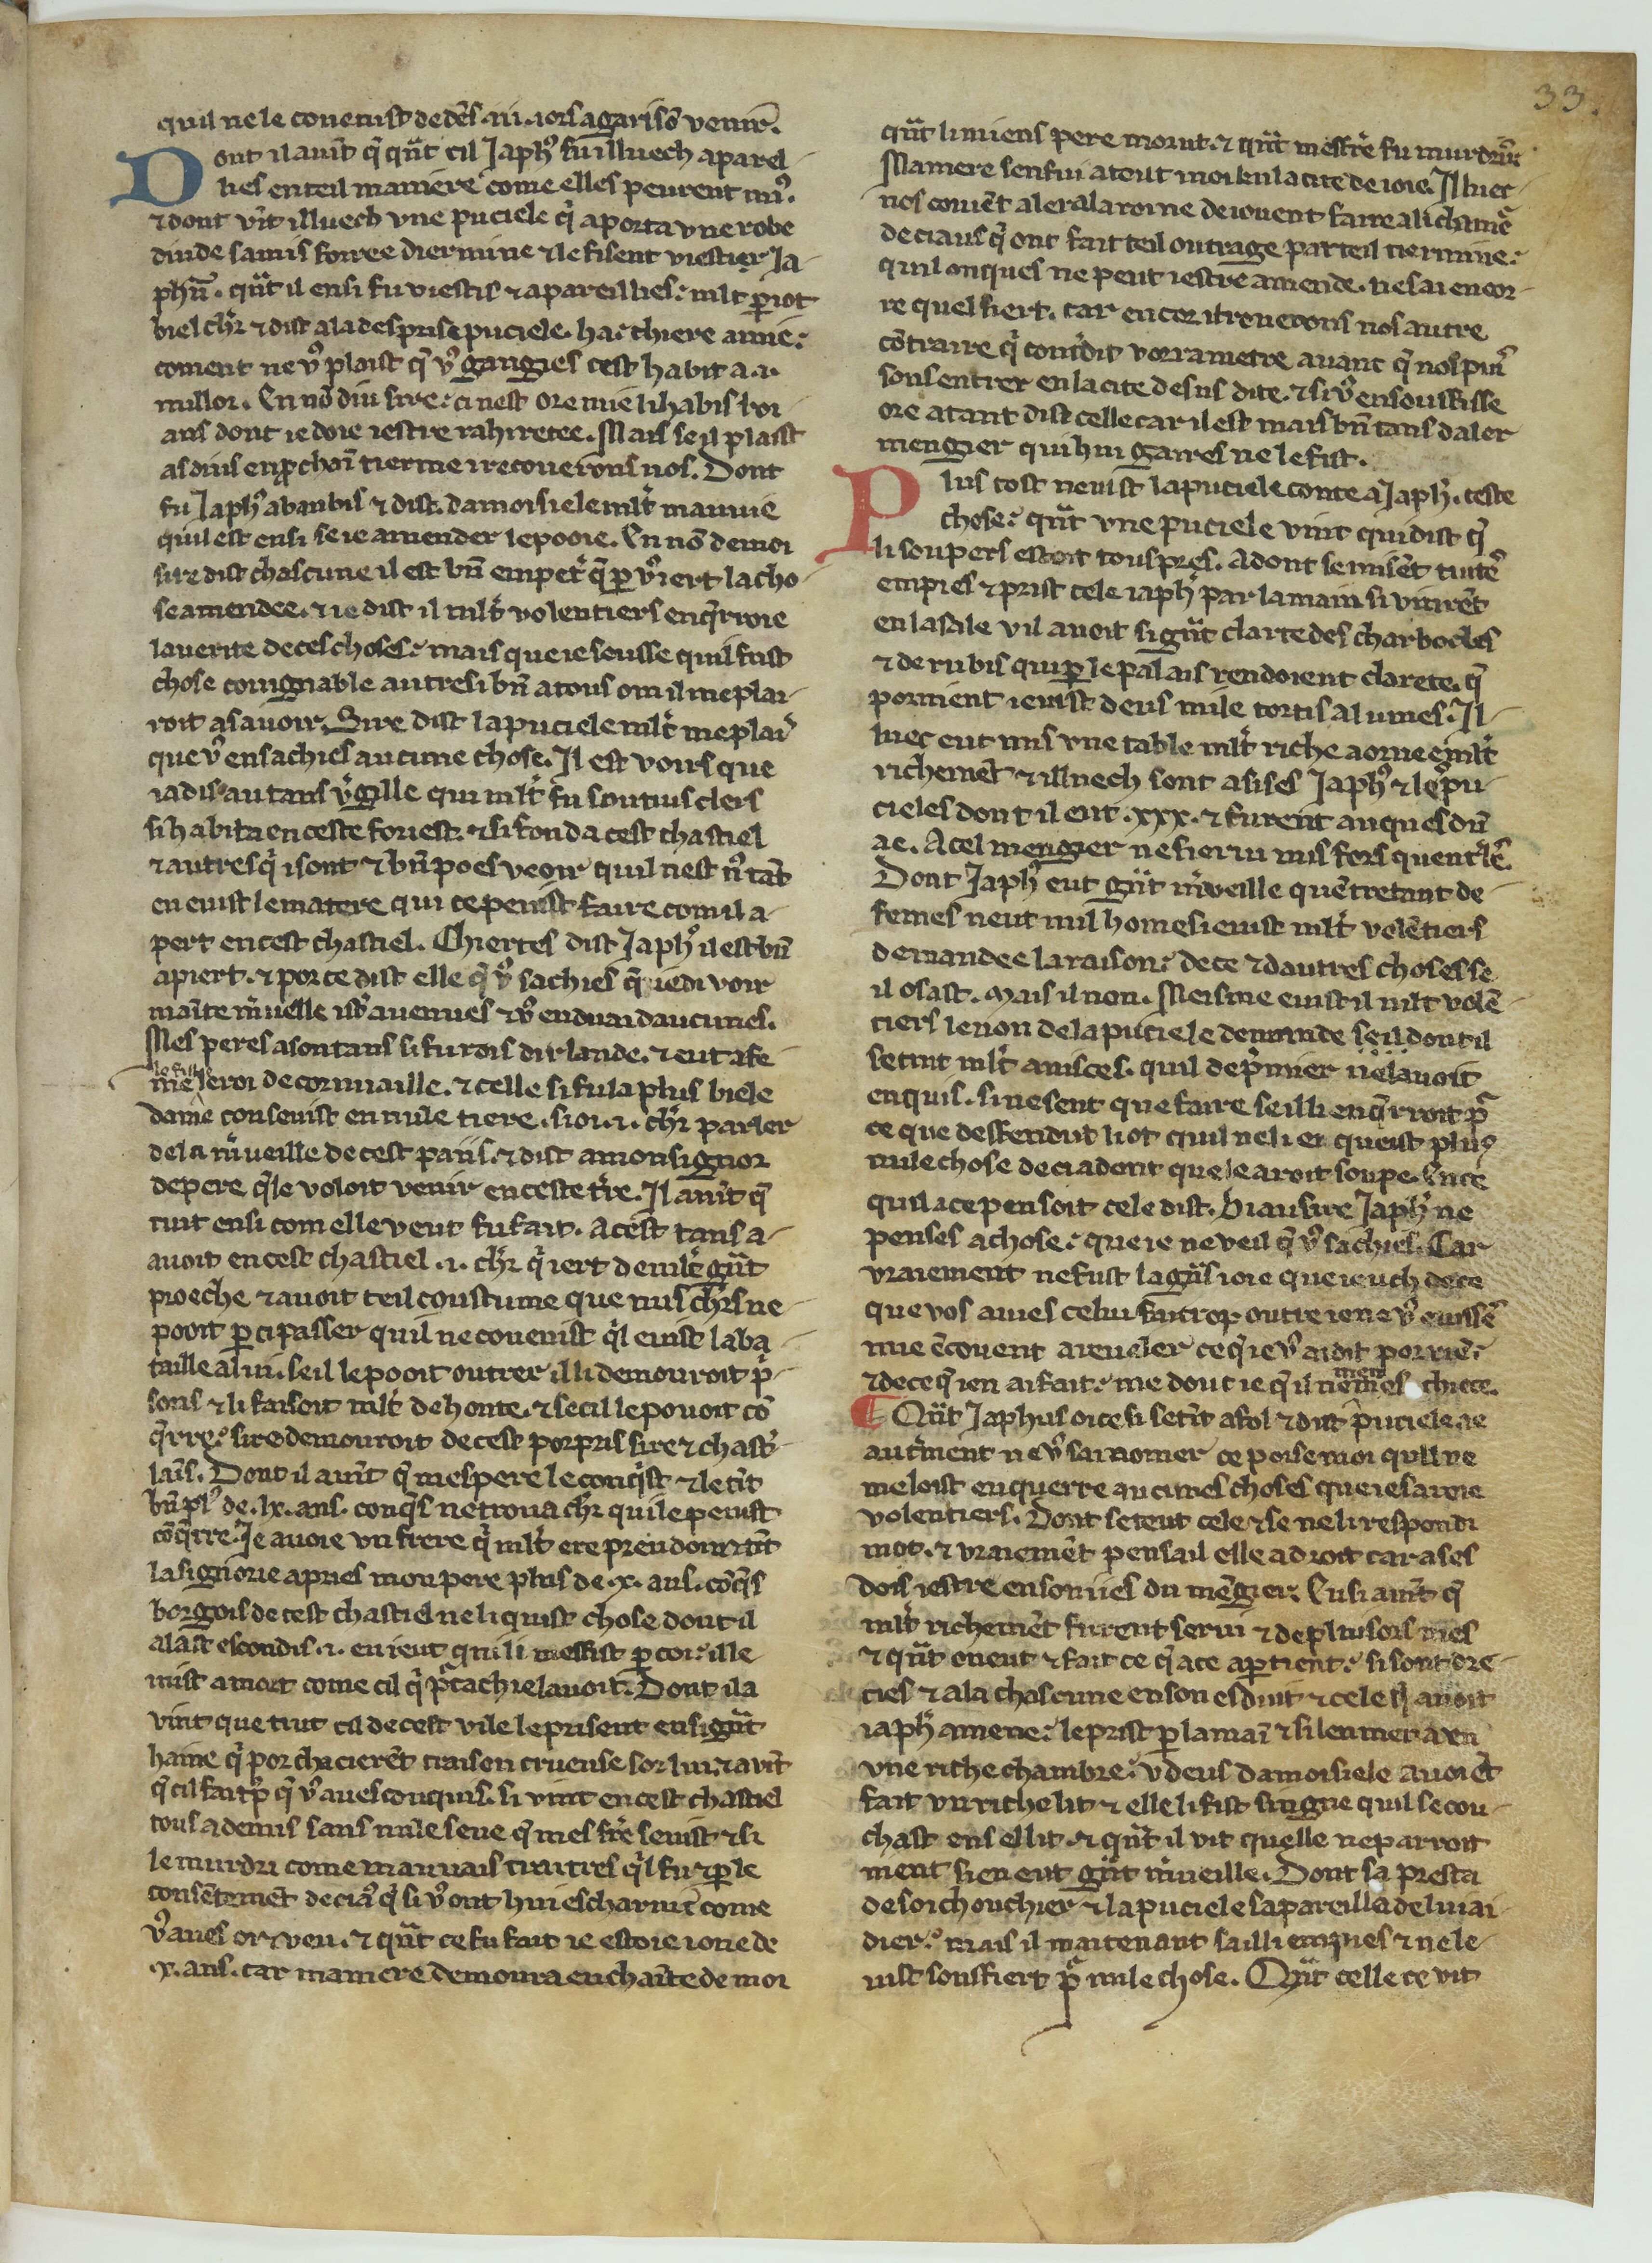 33.
quil ne le couenist dedẽs .iii. iors a gariso᷑ venir.
Dont il auĩt q̃ qũt cil Japhꝰ fu illuech aparel
lies en teil maniere come elles peurent miꝰ.
⁊ dont vĩt illuech vne puciele q̃ aporta vne robe
dinde samis forree diermine ⁊ le fisent viestier Ja-
phũ. qũt il ensi fu viestis ⁊ apareillies. mlt ꝑ iot
biel chr̃ ⁊ dist a la desprise puciele. ha. chiere amie.
coment ne vꝰ plaist q̃ vꝰ gangies cest habit a .i.
millor. En nõ diu sire. ci nest ore mie li habis boi
ans dont ie doie iestre rahiretee. Mais se il plaist
as dius en ꝓchaĩ tierme i recouerons nos. Dont
fu Japhꝰ abaubis ⁊ dist. damoisiele mlt̃ mannie
quil est ensi se ie amender le pooie. En nõ de moi
sire dist chascune il est bñ empet̃ q̃ ꝑ vꝰ iert la cho-
se amendee. ⁊ ie dist il mlt̃ volentiers enq̃rroie
la uerite de ces choses. mais que ie seusse quil fust
chose couignable autresi bñ a tous om il me plai-
roit a sauoir. Sire dist la puciele mlt̃ me plair̃
que vꝰ en sachies aucune chose. Il est voirs que
iadis au tans v̾gille qui mlt̃ fu soutius clers
si habita en ceste foriest. ⁊ si fonda cest chastiel
⁊ autres q̃ i sont ⁊ bñ poes veoir quil nest nꝰ tãt
en euist le matere qui ce peuist faire com il a-
pert en cest chastiel. Chiertes dist Japhꝰ il est bñ
apiert. ⁊ por ce dist elle q̃ vꝰ sachies q̃ ie di voir
mainte m̃uelle ist̃ auenues ⁊ vꝰ en dirai daucunes.
Mes peres a son tans si fu rois dirlande. ⁊ eut a fe-
me le fille le roi de cornuaille. ⁊ celle si fu la plus biele
dame con seuist en nule tiere. si oi .i. chr̃ parler
de la m̃ueille de cest païs. ⁊ dist a mon signor
de pere q̃le voloit venir en ceste t̃re. Il auĩt q̃
tuit ensi com elle veut fu fait. A cest tans a-
auoit en cest chastiel .i. chr̃ q̃ iert de mlt̃ gũt
proeche ⁊ auoit teil coustume que nus chrs ne
pooit ꝑ ci passer quil ne couenist q̃l euist la ba-
taille a lui. se il le pooit outrer il li demouroit p̃-
sons ⁊ li faisoit mlt̃ de honte. ⁊ se cil le pouoit cõ
q̃rre. sire demouroit de cest porpris sire ⁊ chast̃-
lains. Dont il auĩt q̃ mes pere le conq̃st ⁊ le tĩt
bñ plꝰ de .lx. ans. conq̃s ne troua chr̃ qui le peuist
cõq̃rre. Je auoie vn frere q̃ mlt̃ ere preudom ⁊ tĩt
la signorie apries mon pere plus de .x. ans. cõq̃s
borgois de cest chastiel ne li quist chose dont il
alast escondis .i. en i eut qui li meffist ꝑ coi. il le
mist a mort come cil q̃ p̃cachie lauoit. Dont il a
vint que tuit cil de cest vile le prisent en si gũt
haine q̃ por chacierẽt traison cruense sor lui. ⁊ auĩt
q̃ cil fait ꝑ q̃ vꝰ aues conquis. si vint en cest chastiel
tous ademis sans nule seue q̃ mes fr̃e seuist ⁊ si
le murdri come mauuais traitres q̃l fu ⁊ ꝑ le
consẽtemẽt de ciaꝰ q̃ si vꝰ ont hui escharnit come
vꝰ aues or veu. ⁊ qũt ce fu fait ie estoie ione de
.x. ans. car ma mere demoura enchaĩte de moi
qũt li miens pere morut. ⁊ qũt mes fr̃e fu murdris
Ma mere senfui a tout moi en la cite de ioie. Illuec
nos couẽt aler a la roine de iouent faire a li clamẽ
de ciaus q̃ ont fait teil outrage par teil tiermine.
quil onques ne peut iestre amende. ne sai encor
re quel fiert. car encor i trouerons nos autre
cõtraire q̃ contr̃dit vorra metre auant q̃ nos puiꝰ
sons entrer en la cite desus dite. ⁊ si vꝰ en souffisse
ore atant dist celle car il est mais bñ tans daler
mengier qui hui gaires ne le fist.
Plus tost neuist la puciele conte a Japhꝰ. ceste
chose. qũt vne puciele vint qui dist q̃
li soupers estoit tous pres. Adont se misẽt tuit ẽ
empies ⁊ prist cele iaphꝰ par la main. si vinrẽt
en la sale v il auoit si gũt clarte des charbocles
⁊ de rubis qui ꝑ le palais rendoient clarete. q̃
poruient i euist deus mile tortis alumes. Il-
luec eut mis vne table mlt̃ riche aornee mlt̃
richemẽt ⁊ illuech sont asises Japhꝰ ⁊ les pu-
cieles dont il eut .xxx. ⁊ furent auques dũ
ae. A cel menger ne sierui nus fors quent̃leꝰ.
Dont Japhꝰ eut gũt m̃veille quentretant de
femes neut nul homes i euist mlt̃ volẽtiers
demandee la raison. de ce ⁊ dautres choses se
il osast. Mais il non. Meisme euist il mlt volẽ-
tiers le non de la puciele demande se il dont il
setint mlt̃ a nisces. quil de p̃mier ne lauoit
enquis. si ne sent que faire se il li enq̃rroit p̃
ce que deffendut li ot quil ne li en quesist plus
nule chose deci adont que le aroit soupe. En ce
quil a ce pensoit cele dist. Biau sire Japhꝰ ne
penses a chose. que ie ne veil q̃ vꝰ sachies. Car
vraiement ne fust la gũs ioie que ieuch de ce
que vos aues celui fait rop outre ie ne vꝰ euissẽ
mie ẽcouent a reueler ce q̃ ie vꝰ ai dit por riẽ.
⁊ de ce q̃ ien ai fait. me dout ie q̃ il ne men meschiece.
Qũt Japhus oi ce si se tĩt a fol ⁊ dist puciele ie
autr̃ment ne vꝰ sai nomer ce poise moi quil ne
me loist enquerre aucunes choses que ie saroie
volentiers. Dont se teut cele ⁊ se ne li respondi
mot. ⁊ vraiemẽt pensa il elle a droit car ases
dois iestre ensonies du mẽgier. Ensi auĩt q̃
mlt̃ richemẽt furent serui ⁊ de pluisors mes
⁊ qũt eneut ⁊ fait ce q̃ a ce aꝑtient. si sont dre-
cies ⁊ ala chascune en son esduit ⁊ cele q̃ auoit
iaphꝰ amene. le prist ꝑ la maĩ ⁊ si len mena en
vne riche chambre. v deus damoisiele auoiẽt
fait vn riche lit ⁊ elle li fist singne quil se cou-
chast ens el lit. ⁊ qũt il vit quelle ne parroit
ment si en eut gũt m̃ueille. Dont sa presta
de soi chouchier ⁊ la puciele sapareilla de lui ai-
dier. mais il maitenant sailli empies ⁊ ne le
uist souffiert p̃ nule chose. Qũt celle ce vit